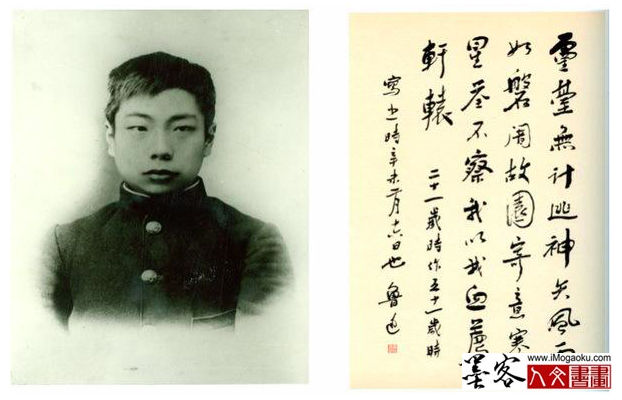 靈臺無計逃神矢風雨
如磐闇故園寄意寒
星荃不察我以我血薦
軒轅
二十一歲時作五十一歲時
寫之時辛未二月十六日也 魯迅
墨客
www.iMogaoku.com
人文書畫